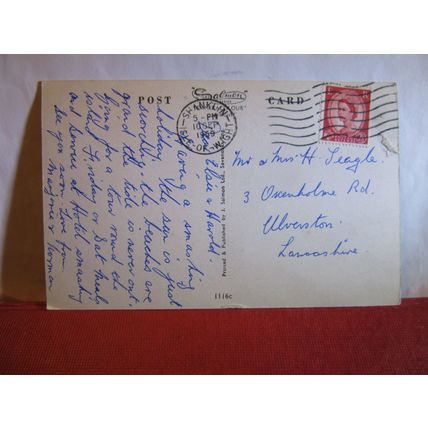 Salmon
POST CARD
SHANKLIN
5 - PM
1959
ISLE-OF-WIGHT
Dear Elsie & Harold.
Having a smashing
holiday. The sea is just
the beaches are
grand the tide is never out,
going for a tour round the
island Friday or Sat. Meals
and service at Hotel smashing
See you soon. Love from
Marjorie & Norman
Printed & Published by J. Salmon Ltd., Sevenoaks
1116c
Mr & Mrs H. Seagle.
3 Oxenholme Rd.
Ulverston
Lancashire.